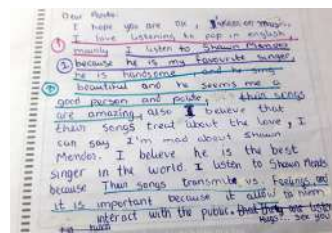 Dear
I hope you are OK,
I love listening to pop in english,
① mainly I listen to Shawn Mendes
② because he is my favourite singer,
he is handsome and he sing
③ beautiful and he seems me a
good person and polite, their songs
are amazing, also I believe that
their songs tread about the love, I
can say I'm mad about Shawn
Mendes. I believe he is the best
singer in the world. I listen to Shawn Mendes
because Their songs transmite vs. Feelings and
it is important because it allow to him
interact with the public.
Hugs... see you